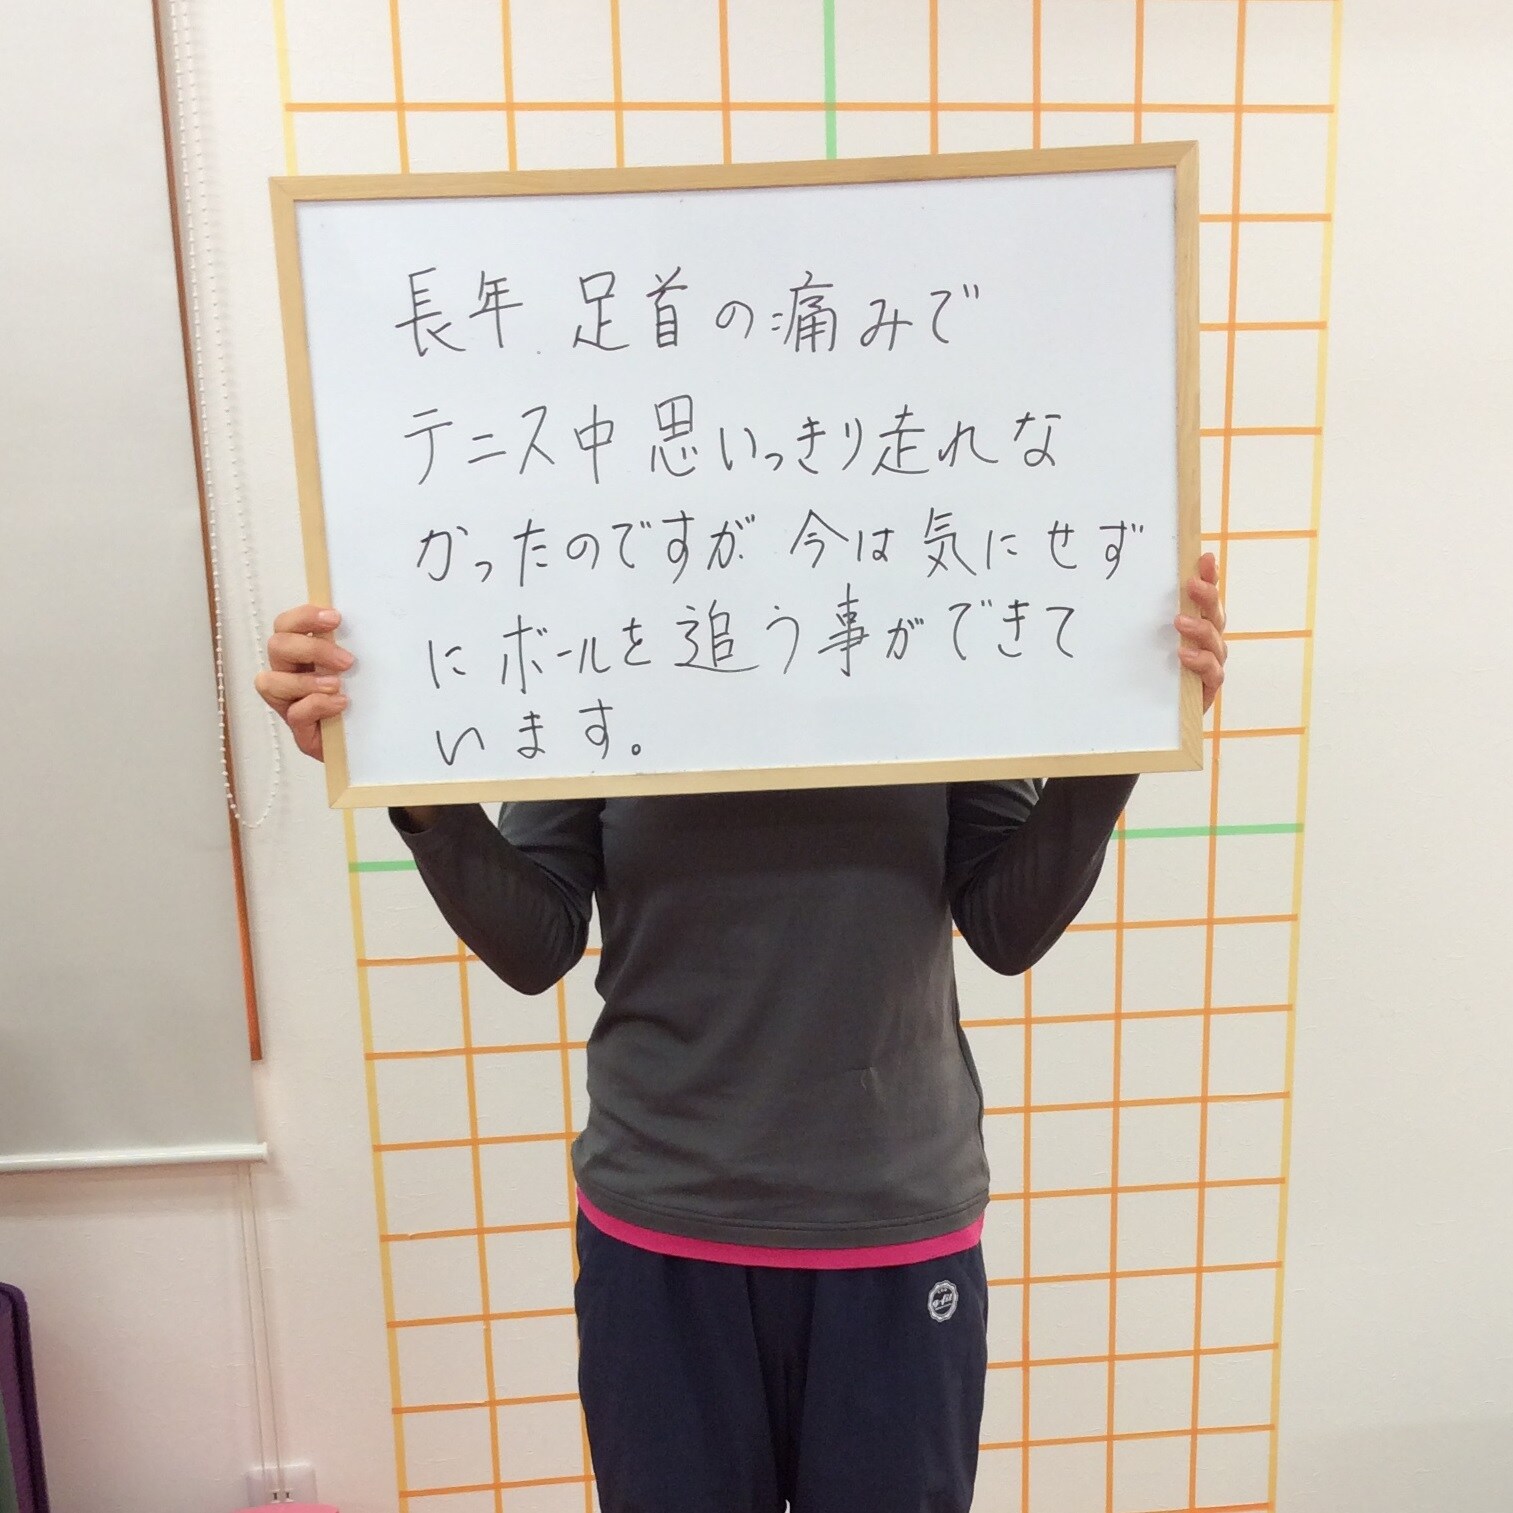 長年 足首の痛みで
テニス中思いっきり走れな
かったのですが 今は気にせず
にボールを追う事ができて
います。